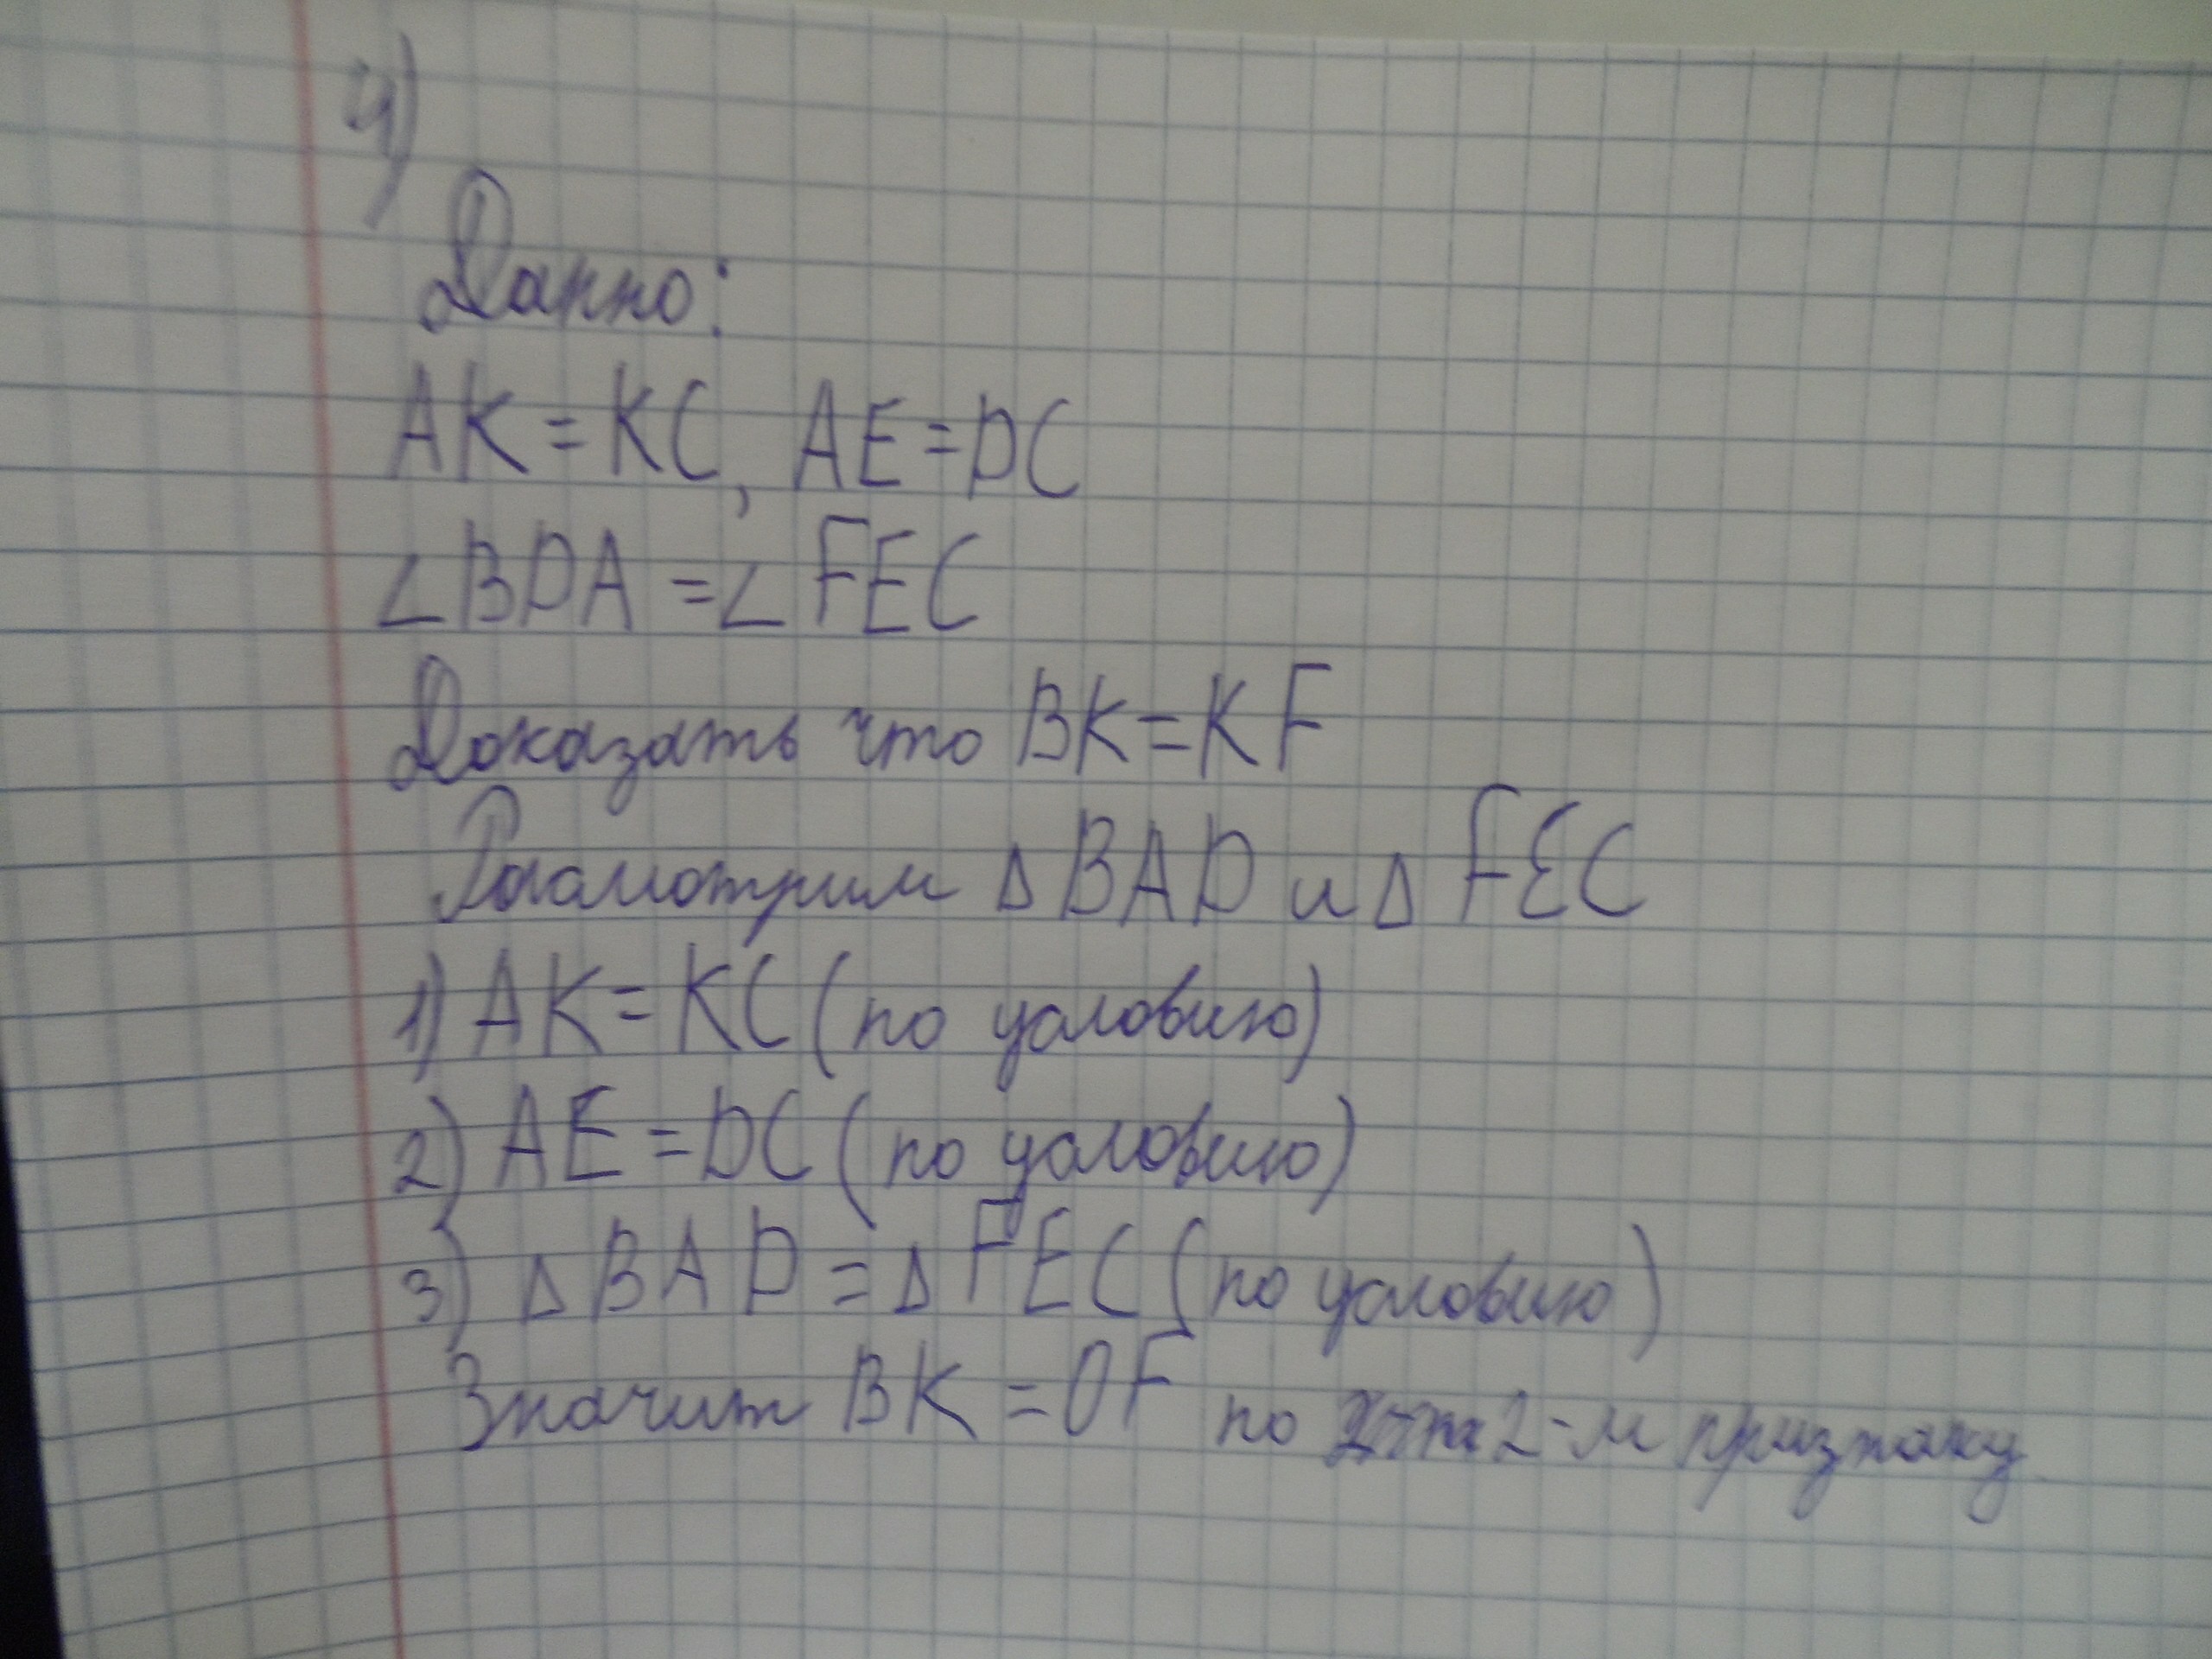 4)
Данно:
AK = KC, AE = DC
∠BDA = ∠FEC
Доказать что BK = KF
Расмотрим ΔBAD и ΔFEC
1) AK = KC (по условию)
2) AE = DC (по условию)
3) ΔBAD = ΔFEC (по условию)
Значит BK = OF по 2-м признаку